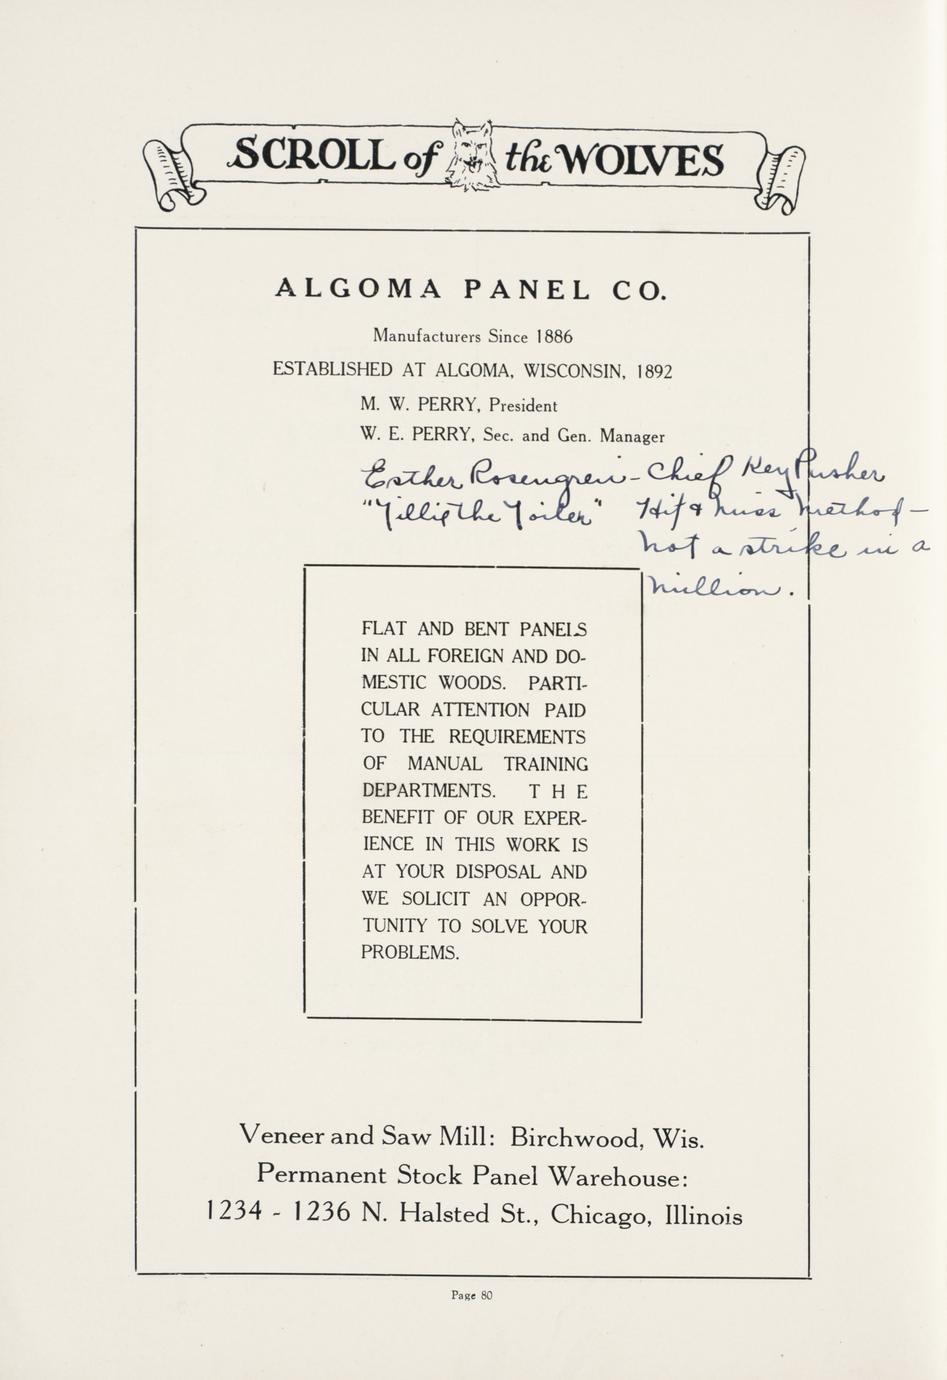 SCROLL of the WOLVES
ALGOMA PANEL CO.
Manufacturers Since 1886
ESTABLISHED AT ALGOMA, WISCONSIN, 1892
M. W. PERRY, President
W. E. PERRY, Sec. and Gen. Manager
Esther Rosengren - Chief Key Pusher
"Tillie the Toiler" Hit & miss method -
not a strike in a
million.
FLAT AND BENT PANELS
IN ALL FOREIGN AND DO-
MESTIC WOODS. PARTI-
CULAR ATTENTION PAID
TO THE REQUIREMENTS
OF MANUAL TRAINING
DEPARTMENTS. THE
BENEFIT OF OUR EXPER-
IENCE IN THIS WORK IS
AT YOUR DISPOSAL AND
WE SOLICIT AN OPPOR-
TUNITY TO SOLVE YOUR
PROBLEMS.
Veneer and Saw Mill: Birchwood, Wis.
Permanent Stock Panel Warehouse:
1234 - 1236 N. Halsted St., Chicago, Illinois
Page 80